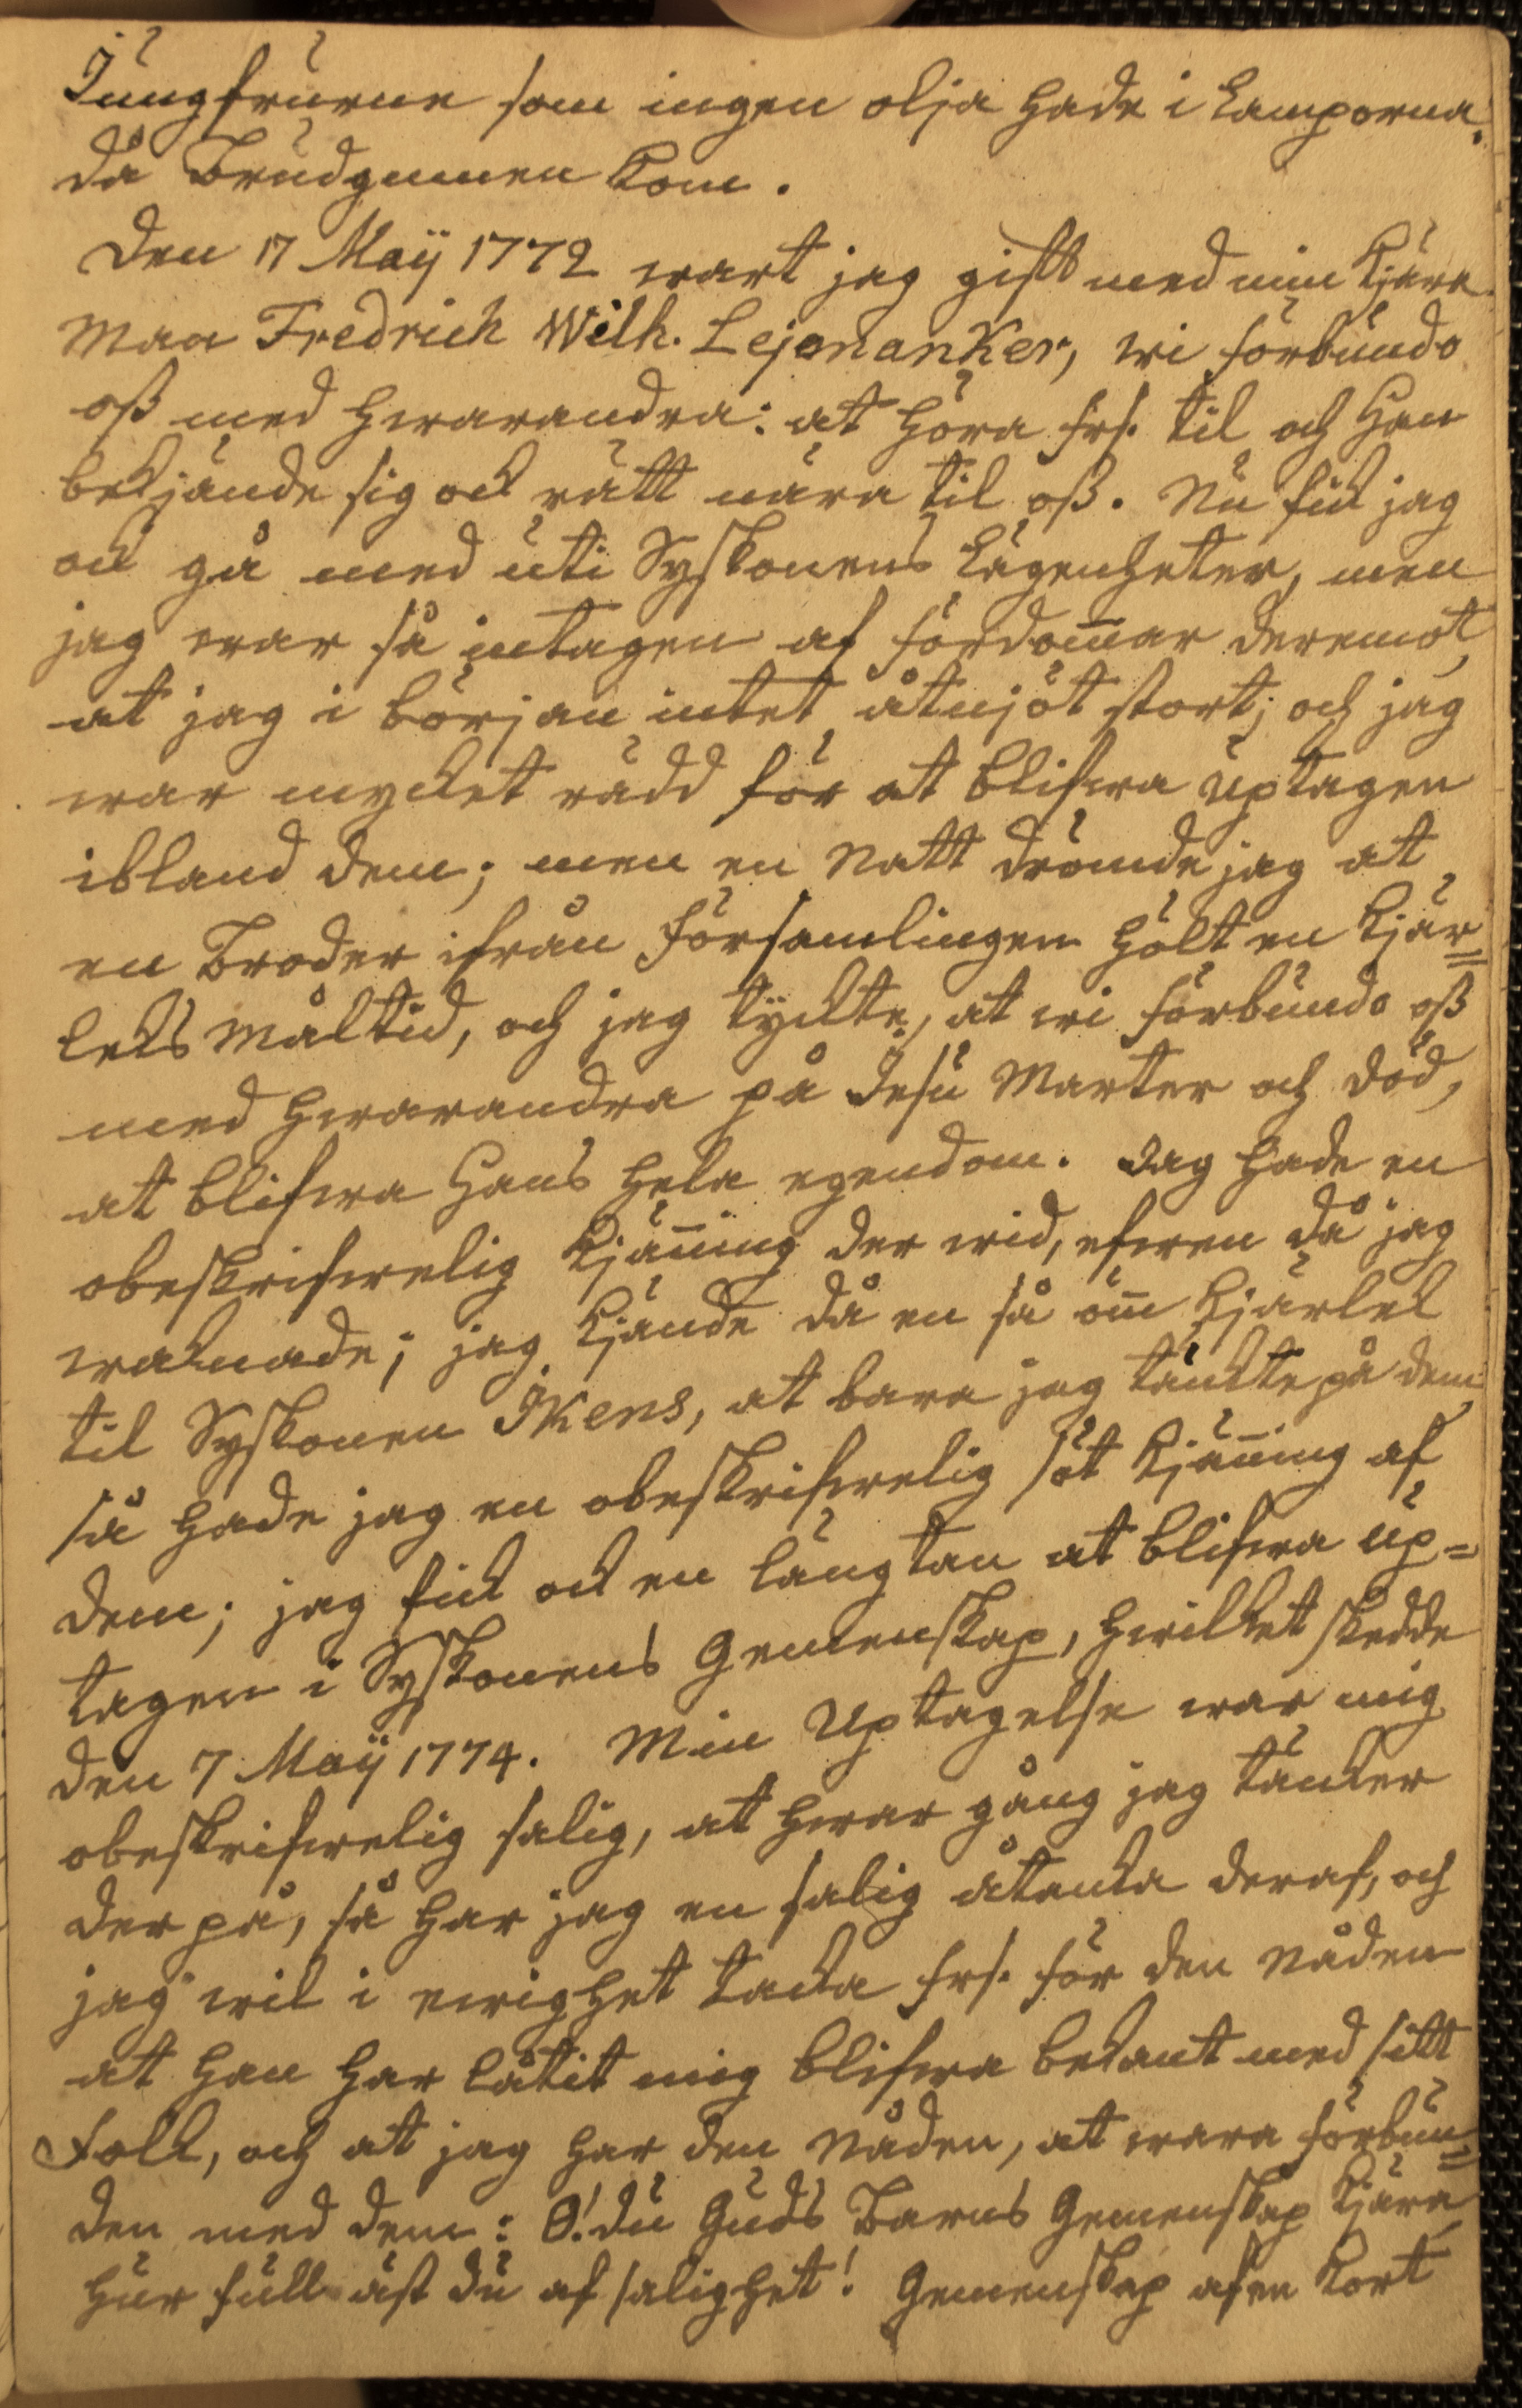 Jungfrurne som ingen olja hade i Lamporna,
då Brudgummen kom.
Den 17 Maÿ 1772 wart jag gift med min kjära
Man Fredrich Wilh. Lejonanker, wi förbundo
oß med hwarandra: at höra Frs. til och Han
bekjände sig ock rätt nära til oß. Nu fick jag
ock gå med uti Syskonens Lägenheter, men
jag war så intagen af fördom̄ar deremot,
at jag i början intet åtnjöt stort; och jag
war mycket rädd för at blifwa uptagen
ibland dem; men en Natt drömde jag at
en Broder ifrån Församlingen hölt en kjär=
leks Måltid, och jag tyckte, at wi förbundo oß
med hwarandra på Jesu Marter och död,
at blifwa Hans hela egendom. Jag hade en
obeskrifwelig kjän̄ing der wid, efwen då jag
waknade; jag kjände då en så öm̄ kjärlek
til Syskonen Ikens, at bara jag tänckte på dem,
så hade jag en obeskrifwelig söt kjän̄ing af
dem; jag fick ock en längtan at blifwa up=
tagen i Syskonens Gemenskap, hwilket skedde
den 7 Maÿ 1774. Min Uptagelse war mig
obeskrifwelig salig, at hwar gång jag täncker
der på, så har jag en salig åtancka deraf, och
jag wil i ewighet tacka Frs. för den Nåden
at han har låtit mig blifwa bekant med sitt
Folk, och at jag har den Nåden, at wara förbun=
den med dem: O! du Guds Barns Gemenskap kjära,
hur full äst du af salighet! Gemenskap af en kort